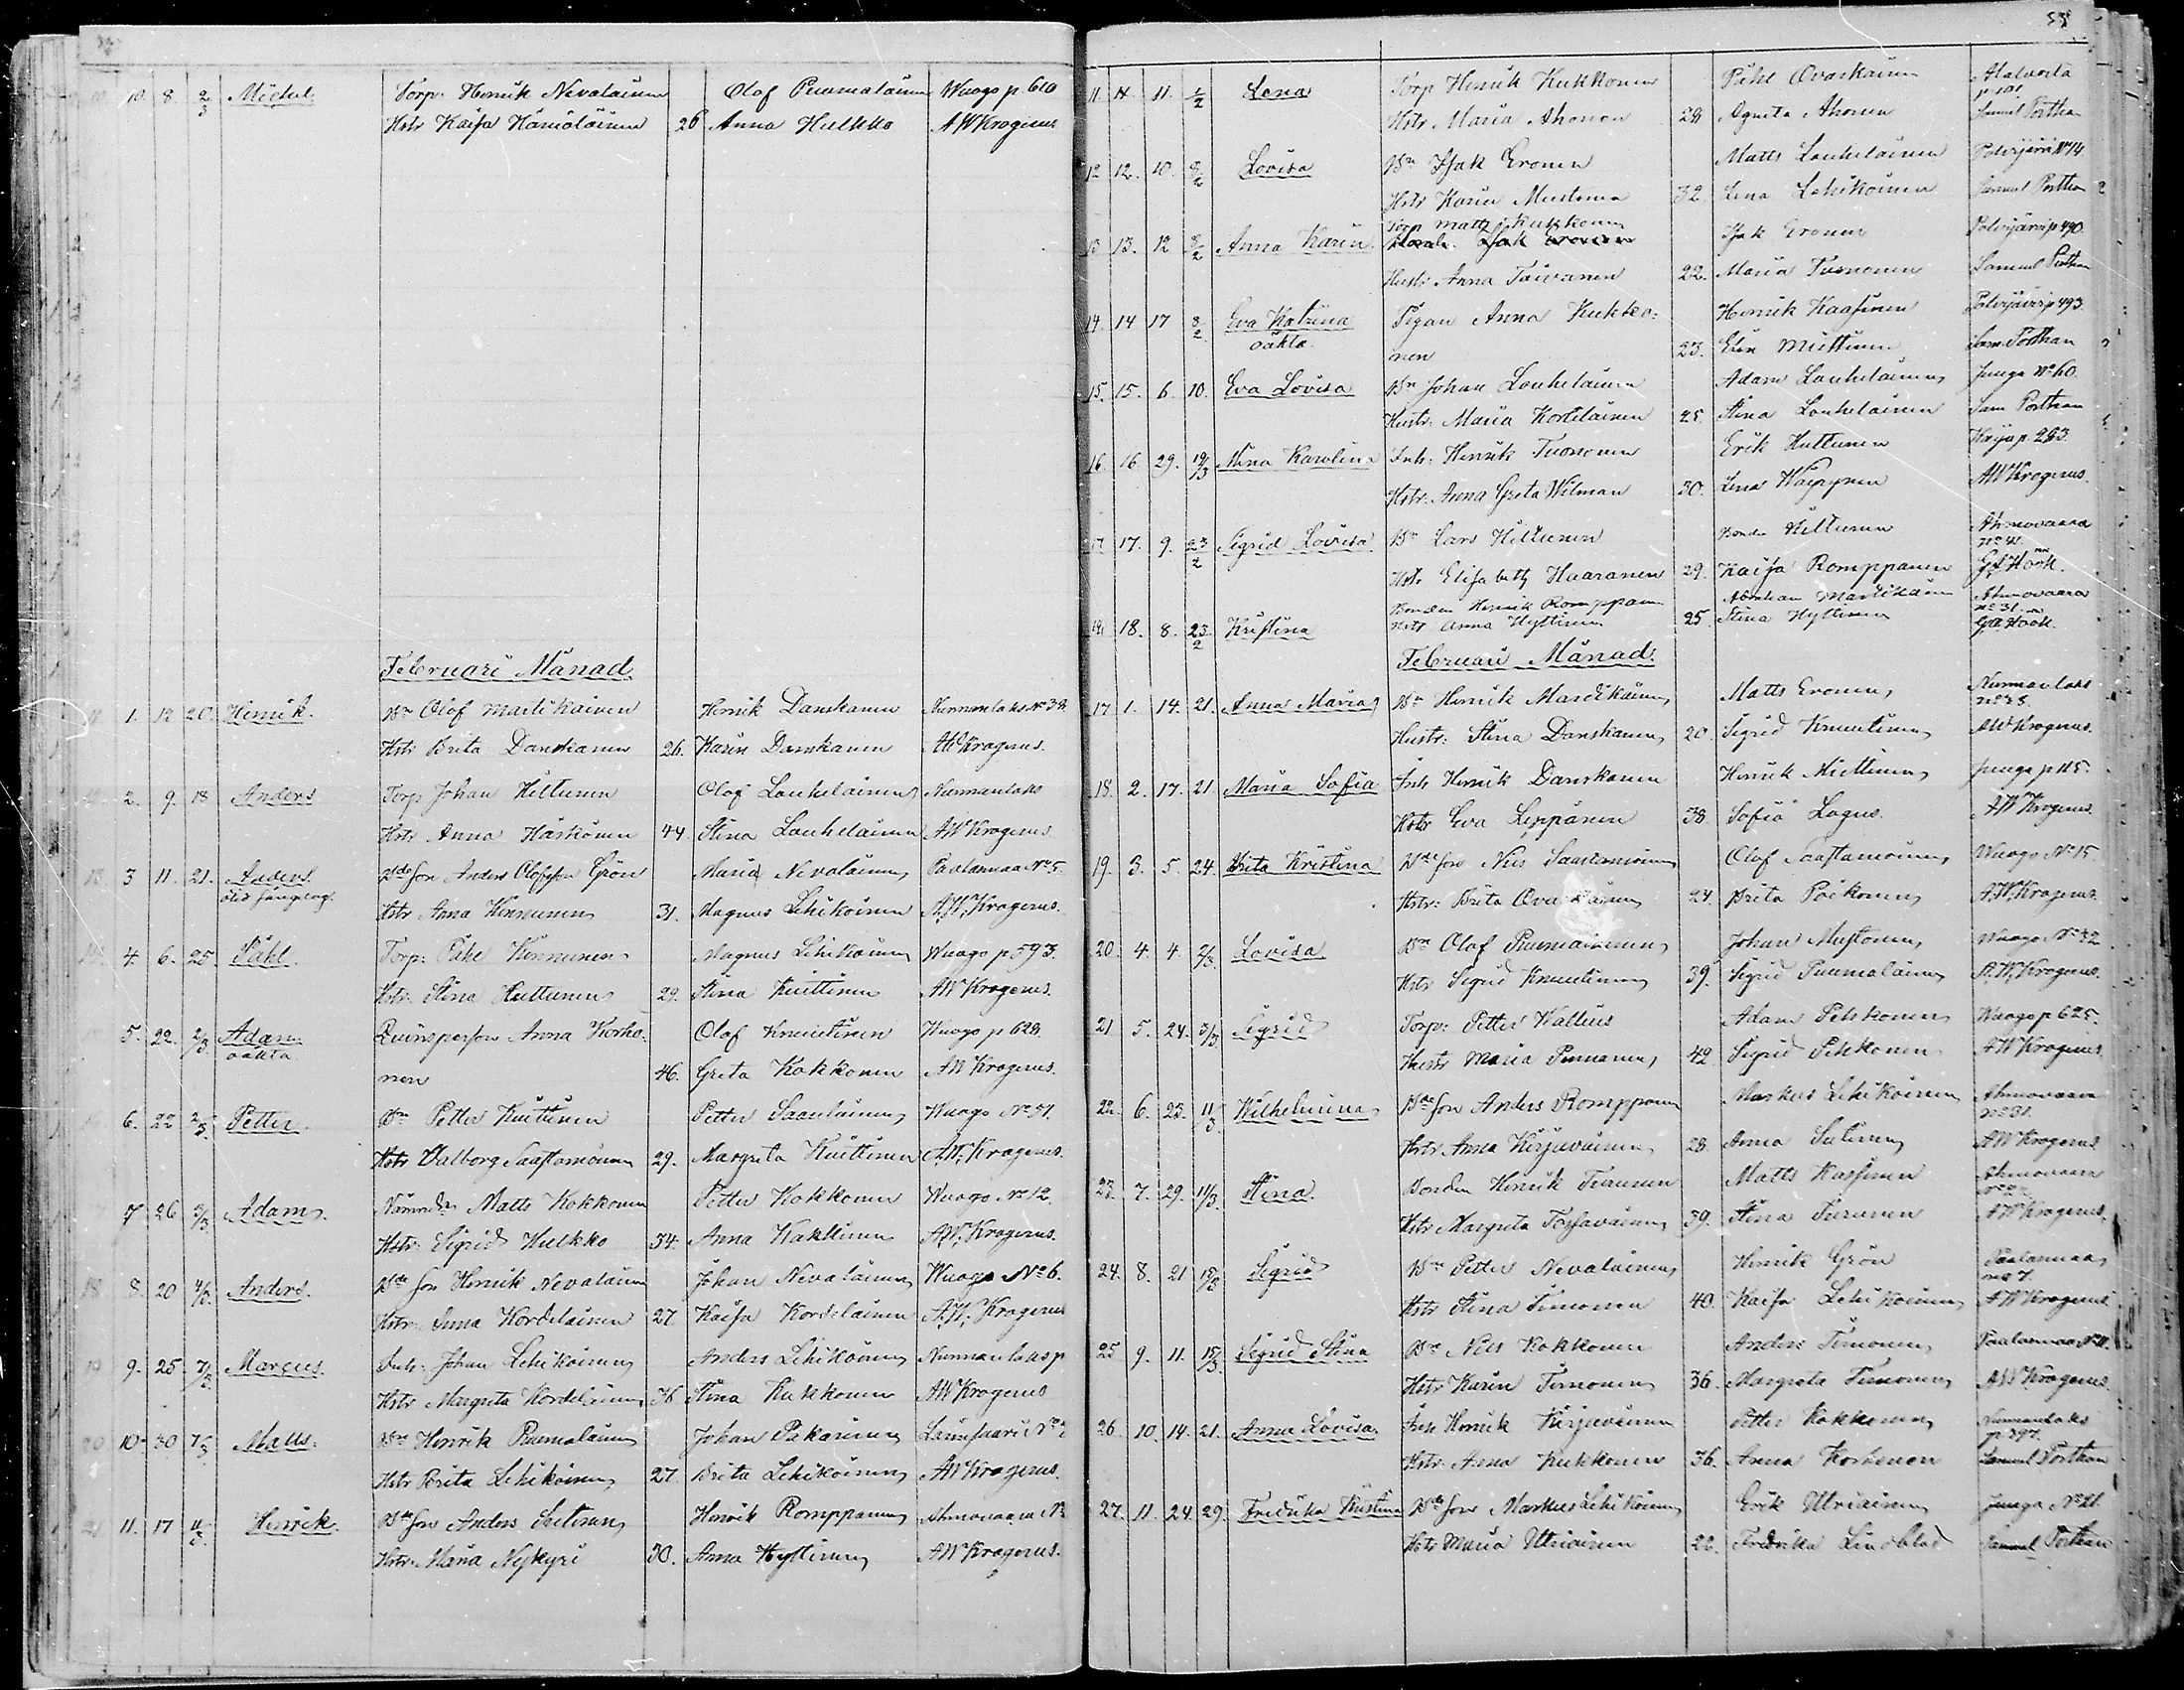 10. 8. 2/3 Michel. Torp. Henrik Nevalainen Olof Puumalainen Wuago p. 610
Hstr Kaisa Hämäläinen 26 Anna Hulkko AW Krogerus
Februari Månad.
1. 12 20. Henrik. Bn Olof Martikainen Henrik Danskanen Nurmanlaks No 38.
Hstr Brita Danskanen 26. Karin Danskanen AW Krogerus.
2. 9. 18 Anders Torp Johan Hiltunen Olof Louhelainen Nurmanlaks
Hstr Anna Härkönen 44. Stina Louhelainen AW Krogerus
3 11. 21. Anders Bdeson Anders Olofsson Grön Maria Nevalainen Paalasmaa No 5.
Hstr Anna Kinnunen 31. Magnus Lehikoinen A.W. Krogerus.
4. 6. 25. Påhl. Torp: Påhl Kinnunen Magnus Lehikoinen Wuago p 593.
Hstr Stina Huttunen 29. Stina Kuittinen AW Krogerus.
5. 22. 2/3 Adam Qvinsperson Anna Korho- Olof Knuutinen Wuago p 628.
oäkta nen 46. Greta Kokkonen AW Krogerus.
6. 22 2/3. Petter. Bn Petter Kuittinen Petter Saarelainen Wuago No 51.
Hstr Valborg Saastamoinen 29. Margreta Kuittinen A.W. Krogerus.
7 26 3/3. Adam. Nämnd. Matts Kokkonen Petter Kokkonen Wuago No 12.
Hstr: Sigrid Hulkko 34. Anna Kakkinen A.W. Krogerus.
8. 20 4/3. Anders. Bdeson Henrik Nevalainen Johan Nevalainen Wuago No 6.
Hstr: Anna Kordelainen 27 Kaisa Kordelainen A.W. Krogerus
9. 25 7/3. Marcus. Inh: Johan Lehikoinen Anders Lehikoinen Nurmanlaks p
Hstr Margreta Kordelainen 36 Stina Kukkonen AW Krogerus
10. 30 7/3 Matts. Bn Henrik Puumalainen Johan Pakarinen No
Hstr Brita Lehikoinen 27. Brita Lehikoinen AW Krogerus.
11. 17 11/3. Henrik. Bdeson Anders Sutinen Henrik Romppanen Ahmovaara No
Hstr. Maria Nykyri 30. Anna Hyttinen AW Krogerus.
11. 11. 11. 2/2 Lena Torp Henrik Kukkonen Påhl Ovaskainen Alalvaila
Hstr. Maria Ahonen 28 Agneta Ahonen Samuel Porthan
12 12. 10. 8/2 Lovisa Bn Isak Eronen Matts Louhelainen Polvijärvi No 14.
Hstr Karin Mustonen 32. Lena Lehikoinen Samuel Porthan
Torp Matts Kukkonen
13. 12 8/2 Anna Karin. Isak Eronen Polvijärvi p 490.
Hustr Anna Taivanen 22. Maria Tuononen Samuel Porthan
14. 14 17 8/2. Eva Katrina Pigan Anna Kukko- Henrik Kaasinen Polvijärvi p 493.
oäkta. nen 23. Elin Miettinen Sam. Porthan
15. 15. 6. 10. Eva Lovisa Bn Johan Louhelainen Adam Louhelainen Junga No 60.
Hustr. Maria Kordelainen 25. Stina Louhelainen Sam Porthan
16. 16 29. 19/3 Stina Karolina Inh: Henrik Tuononen Erik Huttunen p. 283.
Hstr. Anna Greta Wilman 30. Lena AW Krogerus.
17. 9. 23/2 Sigrid Lovisa. Bn Lars Hiltunen Hiltunen Ahmovaara
No 41.
Hstr Elisabeth Haaranen 29. Kaisa Romppanen G.A. Höök.
Bonden Henrik Romppanen Abraham Martikainen Ahmovaara
18. 8. 23/2 Kristina Hstr Anna Hyttinen 25. Stina Hyttinen No 31. G.A. Höök.
Februari Månad.
17 1. 14. 21. Anna Maria Bn Henrik Martikainen Matts Eronen Nurmanlaks
No 35.
Hustr: Stina Danskanen 20. Sigrid Knuutinen AW Krogerus.
18. 2. 17. 21 Maria Sofia Inh Henrik Danskanen Henrik Miettinen Junga p 115.
Hstr Eva Leppänen 38. Sofia Lagus. AW Krogerus.
19. 3. 5. 24. Brita Kristina Bdeson Nils Saastamoinen Olof Saastamoinen Wuago No 15.
Hstr: Brita Ova 24. Brita Poikonen A.W. Krogerus.
20. 4. 4. 2/3. Lovisa Bn Olof Puumalainen Johan Mustonen Wuago No 32
Hstr Sigrid Knuutinen 39. Sigrid Puumalainen A.W. Krogerus.
21 5. 24. 3/3 Sigrid Torp: Petter Wallius Adam Pehkonen Wuago p 625.
Hustr Maria 42 Sigrid Pehkonen AW Krogerus.
22. 6. 23. 11/3 Wilhelmina Bdeson Anders Romppanen Markus Lehikoinen Ahmovaara
No 31.
Hstr Anna Kirjavainen 28 Anna Sutinen AW Krogerus
23. 7. 29. 11/3. Stina. Bonden Henrik Turunen Matts Kaasinen Ahmovaara
Hstr Margreta Tossavainen 39. Stina Turunen AW Krogerus.
24. 8. 21 15/3 Sigrid Bn Petter Nevalainen Henrik Grön Paalasmaa
No 7.
Hstr Stina Timonen 40. Kaisa Lehikoinen AW Krogerus.
25 9. 11. 15/3 Sigrid Stina Bn Nils Kokkonen Anders Timonen Paalasmaa
Hstr Karin Timonen 36. Margreta Timonen AW Krogerus.
26. 10. 14. 21. Anna Lovisa. Inh Henrik Kirjavainen Petter Kokkonen Nurmanlaks
p 397.
Hstr. Anna Kukkonen 36. Anna Korhonen Samuel Porthan
27. 11. 24. 29. Fredrika Kristina Bdeson Markus Lehikoinen Erik Utriainen Junga No 21.
Hstr Maria Utriainen 22. Fredrika Lindblad Samuel Porthan